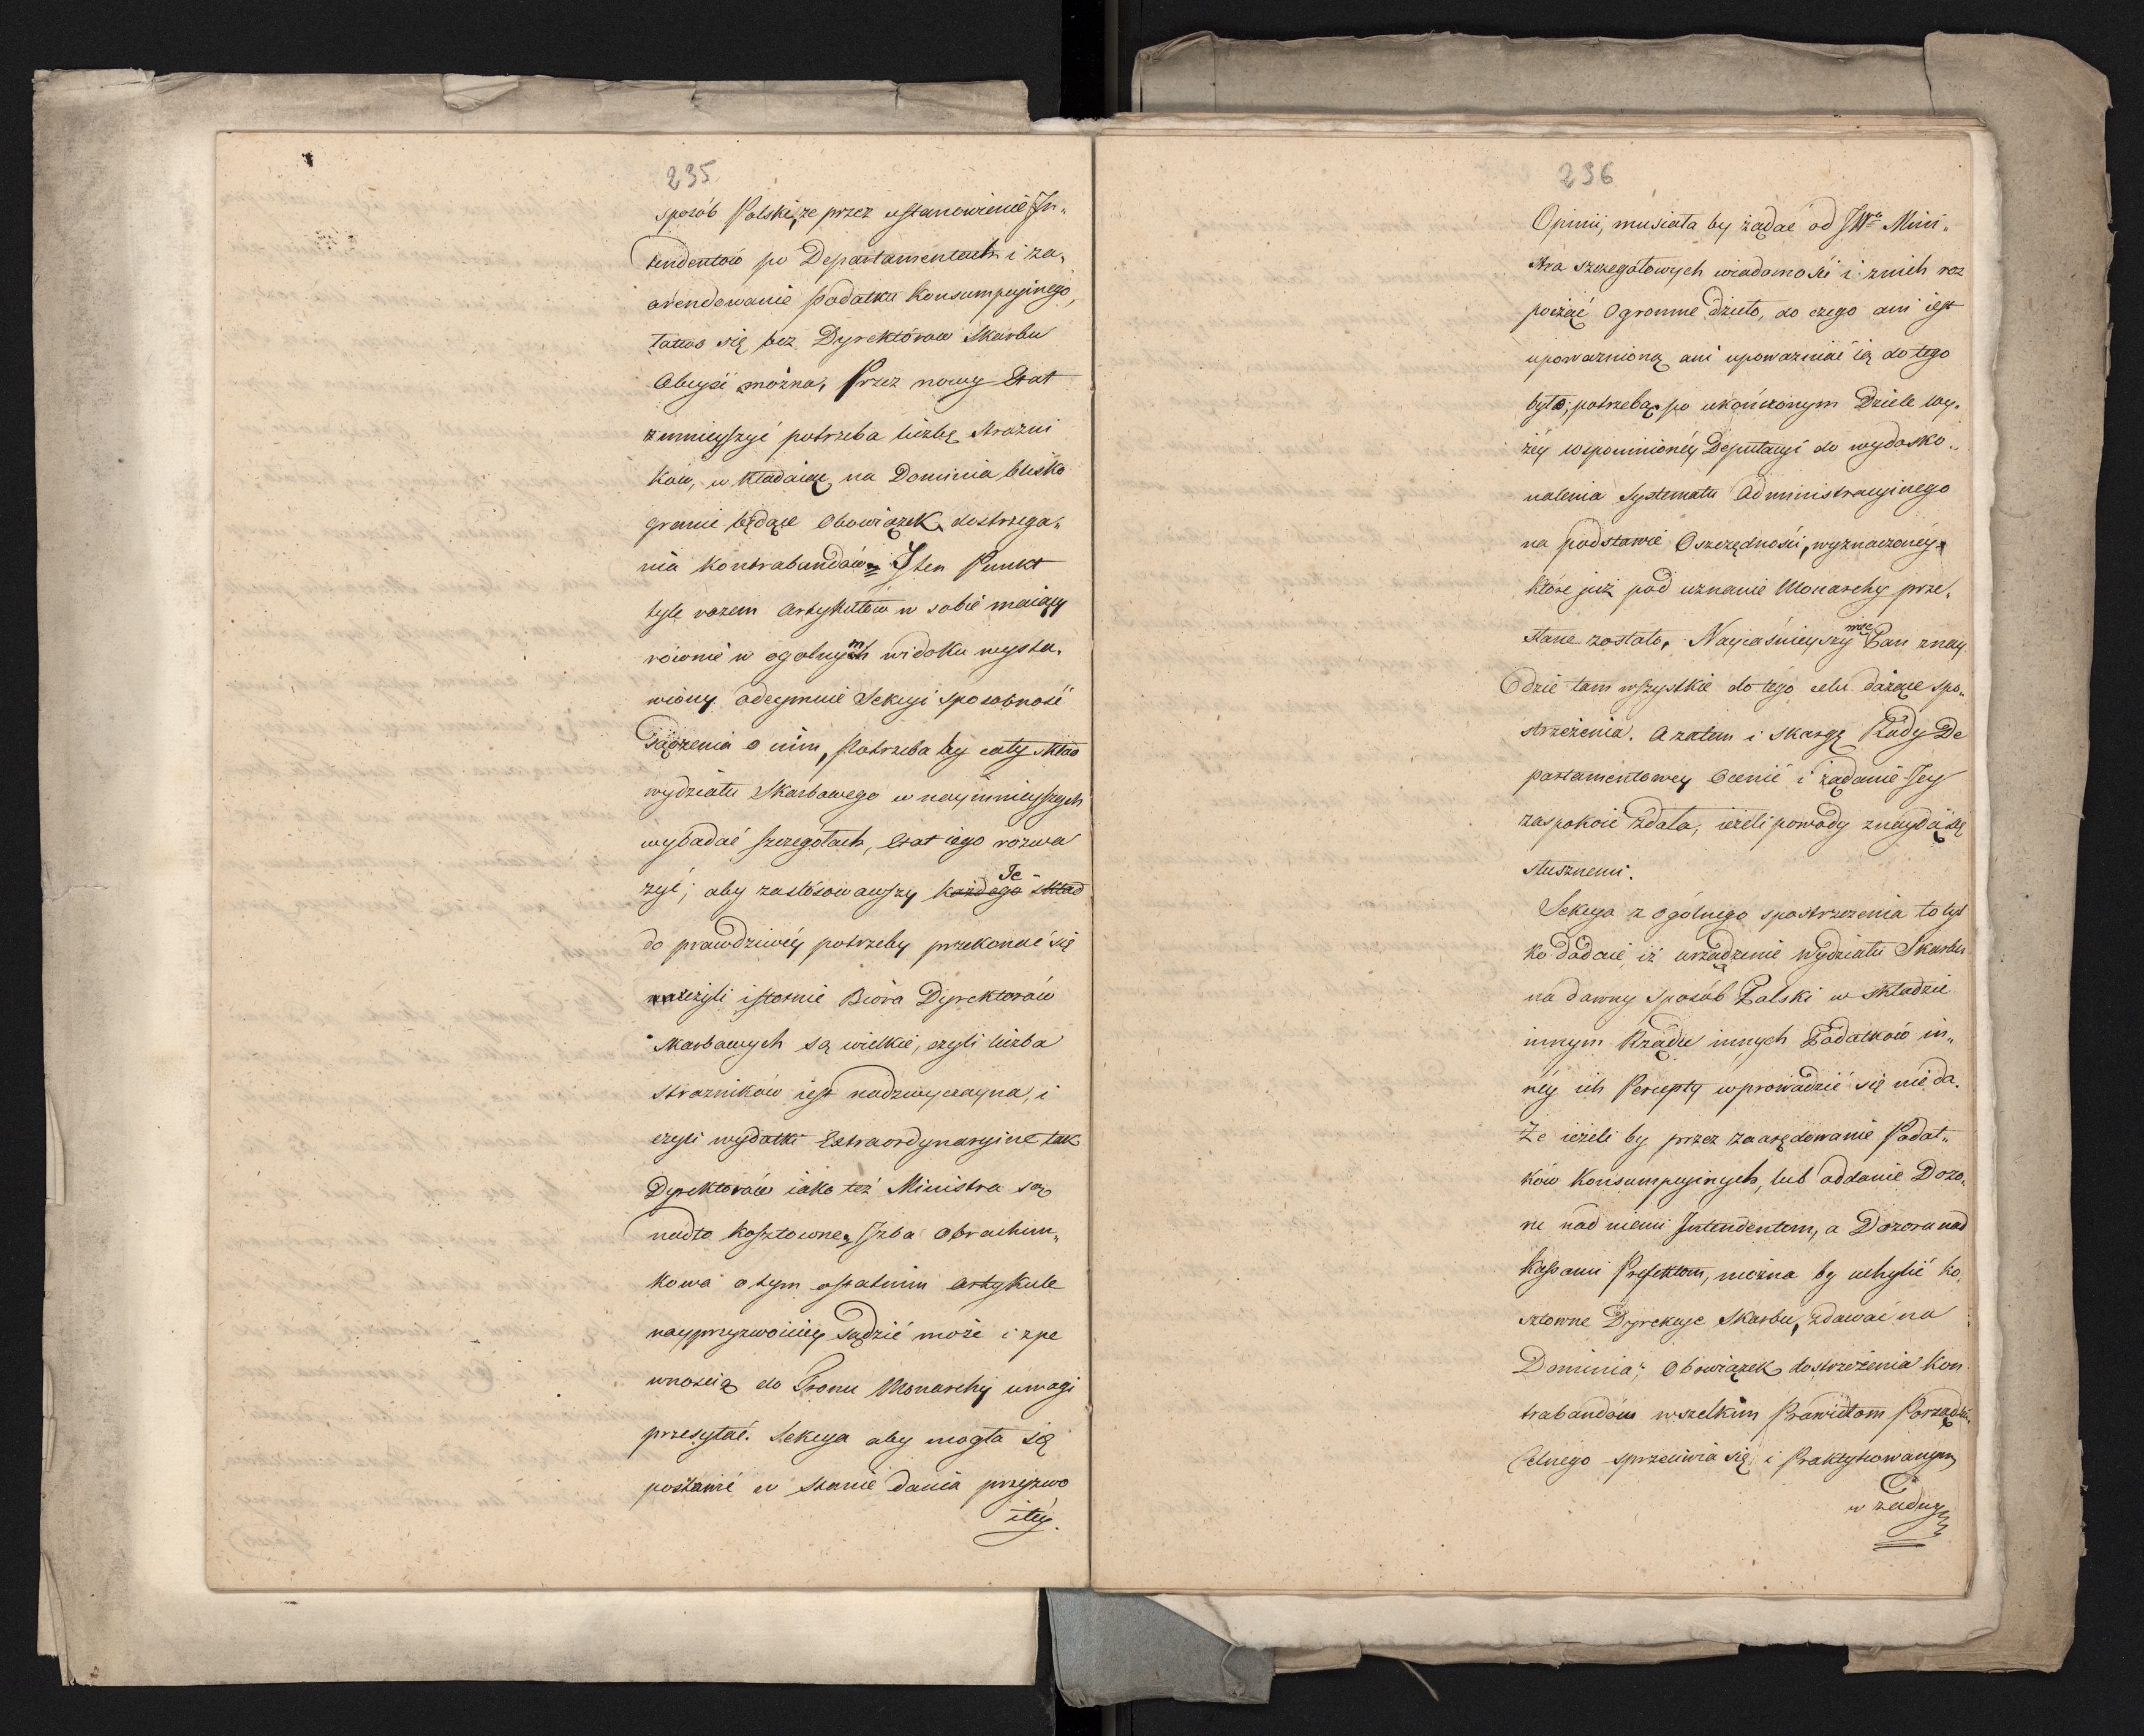 235
sposób Polski, że przez ustanowienie In„
tendentów po Departamentach i za„
arendowanie podatku Konsumpcyinego,
łatwo się bez Dyrektórow Skarbu
Obeyśź można, Przez nowy Etat
zmnieyszyć potrzeba liczbę Strażni
ków, w kładaiąc na Dominia blisko
granic będące Obowiązek dostrzega„
nia Kontrabandów, Jten Punkt
tyle razem Artykułów w sobie maiący
równie w ogolnym widoku wysta„
wiony odeymuie Sekcyi sposobność
Sądzenia o nim, Potrzeba by cały skład
wydziału Skarbowego w naymnieyszych
wybadać szczegółach, Etat iego rozwa
żyć; aby zastósowawszy każdego skład Je
do prawdziwéy potrzeby przekonać się
czyli istotnie Bióra Dyrektorów
Skarbowych są wielkie, czyli liczba
strażników iest nadzwyczayna, i
czyli wydatki Extraordynaryine tak
Dyrektorów iako też Ministra są
nadto kosztowne, Jzba Obrachun„
kowa o tym ostatnim Artykule
nayprzyzwoiciey sądzić może i z pe
wnością do Tronu Monarchy uwagi
przesyłać. Sekcya aby mogła się
postawić w stanie dania przyzwo
itéy.
236
Opinii, musiała by żądać od JWgo Mini„
stra szczegółowych wiadomości i z nich roz
począć Ogromne dzieło, do czego ani iest
upoważnioną ani upoważniać ią do tego
było potrzebą po ukończonym Dziele wy„
żéy wspomnionéy Deputacyi do wydosko„
nalenia Systematu Administracyinego
na podstawie Oszczędności, wyznaczonéy
które już pod uznanie Monarchy prze„
słane zostało, Nayiaśnieyszy wać Pan znay
dzie tam wszystkie do tego celu dążące spo„
strzeżenia. A zatem i skargę Rady De
partamentowey Ocenić i żądanie Jey
zaspokoić zdoła, ieżeli powody znaydą się
słusznemi.
Sekcya z ogólnego spostrzeżenia to tyl
ko dodaie iż urządzenie Wydziału Skarbu
na dawny sposób Polski w składzie
innym Rządu innych Podatków in„
néy ich Percepty wprowadzić się nie da.
Że ieżeli by przez zaarędowanie Podat„
ków Konsumpcyinych, lub oddanie Dozo„
ru nad niemi Jntendentom, a Dozoru nad
Kassami Prefektom, można by uchylić ko„
sztowne Dyrekcye Skarbu, zdawać na
Dominia Obowiązek dostrzeżenia Kon
trabandów wszelkim Prawidłom Porządku
Celnego sprzeciwia się i Praktykowanym
w żadny